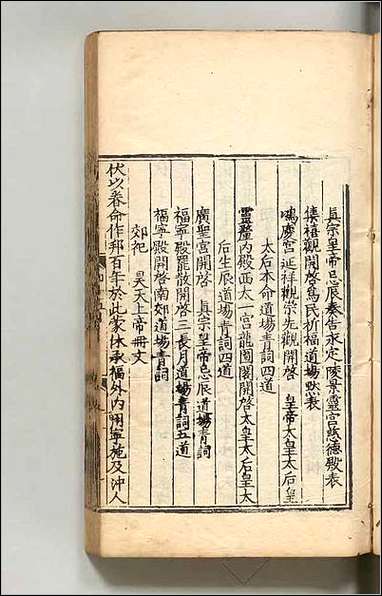 真宗皇帝忌辰奏告永定陵景靈宮慈德殿表
集禧觀開啓爲民祈福道場默表
鴻慶宮延祥觀崇先觀開啓　皇帝太皇太后皇
太后本命道場青詞四道
靈釐內殿西太一宮龍圖閣開啓太皇太后皇太
后生辰道場青詞四道
廣聖宮開啓　真宗皇帝忌辰道場青詞
福寧殿罷散開啓三長月道場青詞五道
福寧殿開啓南郊道場青詞
郊祀　昊天上帝冊文
伏以眷命作邦百年於此蒙休承福外內用寧施及沖人